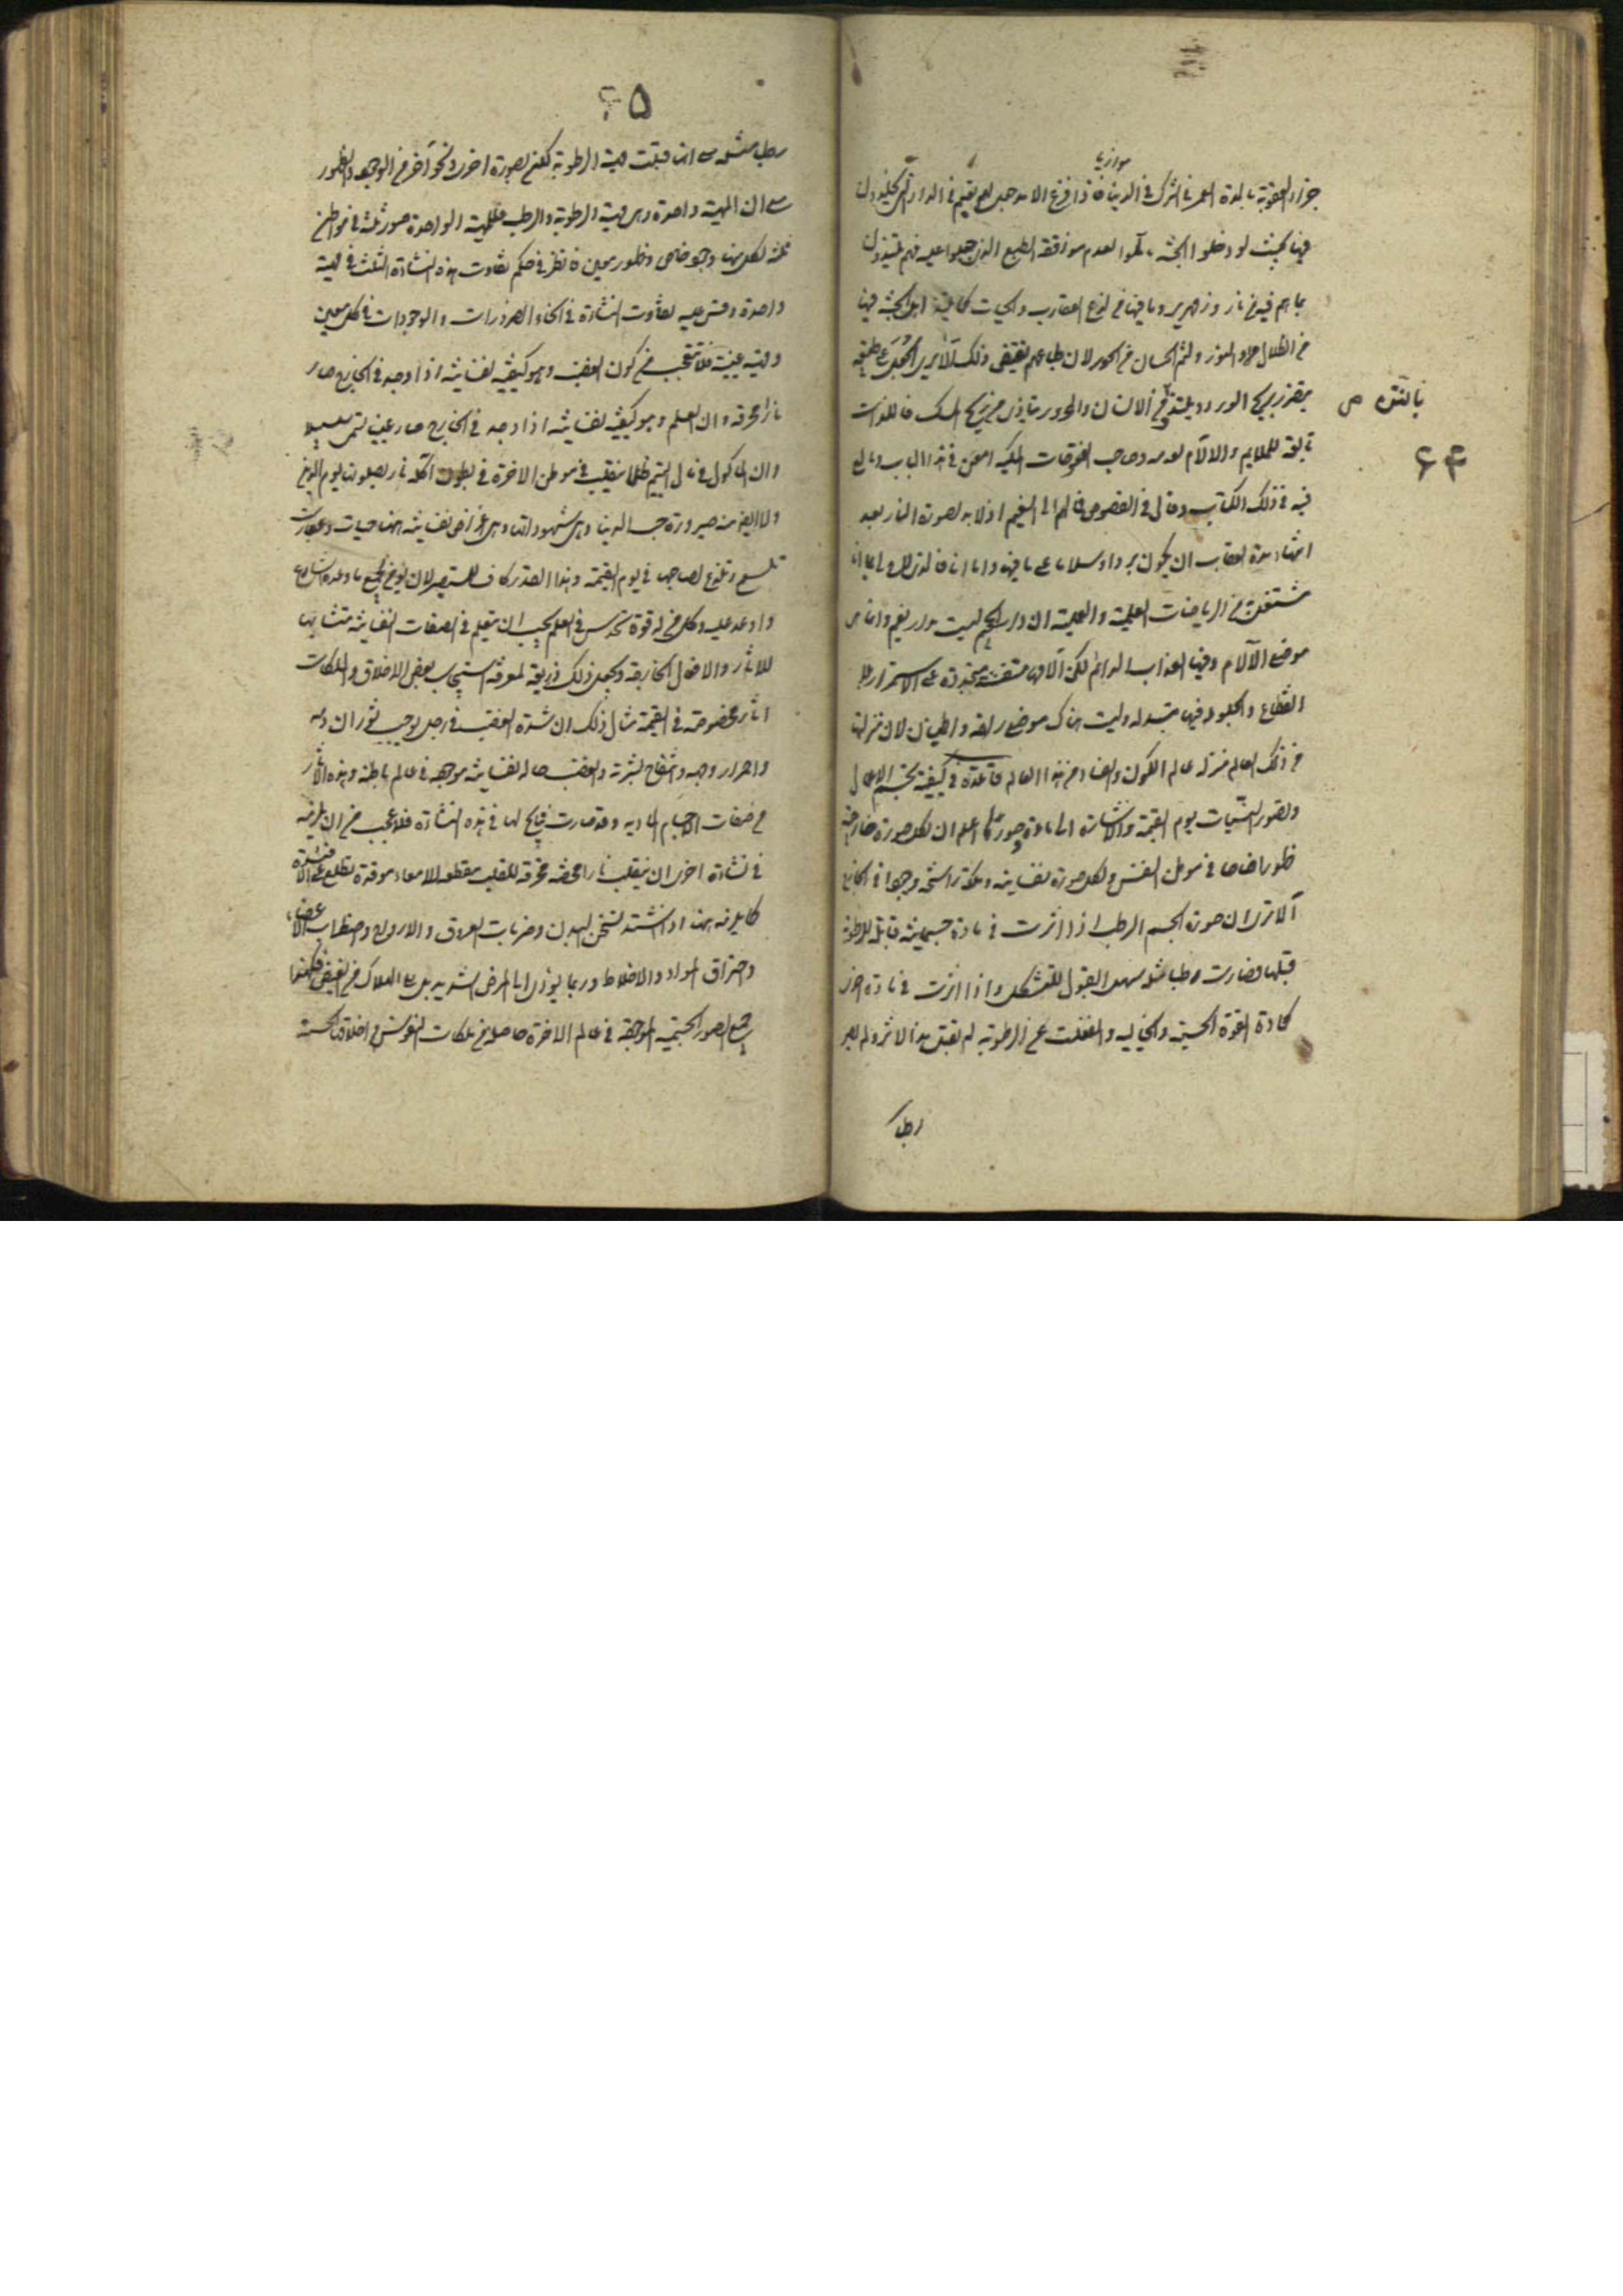 موازيا
جزاء العقوبة بالمدة العمر في الشرك في الدنيا فاذا فرغ الامد جعل لهم نعيم في الدار التي يخلدون
فيها بحيث لو دخلوا الجنة تألموا لعدم موافقة الطبع الذي جبلوا عليه فهم يتلذذون
بما هم فيه من نار وزمهرير وما فيها من لدغ العقارب والحيات كما يلتذ اهل الجنة فيها
من الظلال والنور ولثم الحسان من الحور لان طبايعهم يقتضى ذلك الا يرى الجعل على طبيعة
يتضرر بريح الورد ويلتذ بالنتن والانسان والمحرور يتاذى من ريح المسك فاللذات
بالنتن ص
تابعة للملايم والالام لعدمه وصاحب الفتوحات المكية امعن في هذا الباب وبالغ
۶۴
فيه في ذلك الكتاب وقال في الفصوص فمالهم الى النعيم اذ لا بد لصورة النار بعد
انتهاء مدة العقاب ان يكون بردا وسلاما على ما فيها واما انا فالذي لاح لي بما انا
مشتغل من الرياضات العلمية والعملية ان دار الجحيم ليست بدار نعيم وانما هى
موضع الآلام وفيها العذاب الدائم لكن آلامها متفننة متجددة على الاستمرار بلا
انقطاع والجلود فيها متبدلة وليست هناك موضع راحة واطمينان لان منزلتها
من ذلك العالم منزلة عالم الكون والفساد من هذا العالم قاعدة في كيفية تجسم الاعمال
وتصور النيات يوم القيمة والاشارة الى مادة صورها اعلم ان لكل صورة خارجية
ظهورا خاصا في موطن النفس ولكل صورة نفسانية وملكة راسخة وجودا في الخارج
الا ترى ان صورة الجسم الرطب اذا اثرت في مادة جسمانية قابلة للرطوبة
قبلتها فصارت رطبا مثله سهل القبول للتشكل واذا اثرت في مادة اخرى
كمادة القوة الحسية والخيالية وانفعلت عن الرطوبة لم يقبل هذا الاثر ولم يصر
رطبا
۶۵
رطبا مثله مع انها قبلت مهية الرطوبة لكن بصورة اخرى ونحو آخر من الوجود والظهور
مع ان المهية واحدة وهى مهية الرطوبة والرطب فللمهية الواحدة صور ثلثة في مواطن
ثلثة لكل منها وجود خاص وظهور معين فانظر في حكم تفاوت هذه النشاءة الثلث في مهية
واحدة وقس عليه تفاوت النشاءة في انحاء الظهورات والوجودات في كل معنى
ومهية عينية فلا تتعجب من كون الغضب وهو كيفية نفسانية اذا وجد في الخارج صار
نارا محرقة وان العلم وهو كيفية نفسانية اذا وجد في الخارج صار عينا تسمى سلسبيلا
وان الماكول من مال اليتيم ظلما ينقلب في موطن الاخرة في بطون آكله نار يصلونها يوم الدين
ولا ايضا من صيرورة حب الدنيا وهى شهوداتها وهى اعراض نفسانية هناك حيات وعقارب
تلسع وتلدغ لصاحبها في يوم القيمة وهذا القدر كاف للمستبصر لان يؤمن بجميع ما وعده الشارع
واوعد عليه وكل من له قوة تحدس في العلم يجب ان يتعلم في الصفات النفسانية منشأيتها
للاثار والافعال الخارجية ويجعل ذلك ذريعة لمعرفة استيجاب بعض الاخلاق والملكات
اثارا مخصوصة في القيمة مثال ذلك ان شدة الغضب في رجل يوجب ثوران دمه
واحمرار وجهه وانتفاخ بشرته والغضب حالة نفسانية موجودة في عالم باطنه وهذه الاثار
من صفات الاجسام المادية وقد صارت نتايج لها في هذه النشاءة فلا عجب من ان يلزمه
في نشاءة اخرى ان ينقلب نارا محضة محرقة للقلب مقطعة للامعاء موقدة تطلع على الافئدة
كما يلزمه هنا اذا اشتد تسخن البدن وضربات العروق والاوداج واضطراب الاعضاء
واحتراق المواد والاخلاط وربما يؤدى الى المرض الشديد بل الى الهلاك من الغيظ فهكذا
جميع الصور الجسمية الموجودة في عالم الاخرة حاصلة من ملكات النفوس في اخلاقها الحسنة